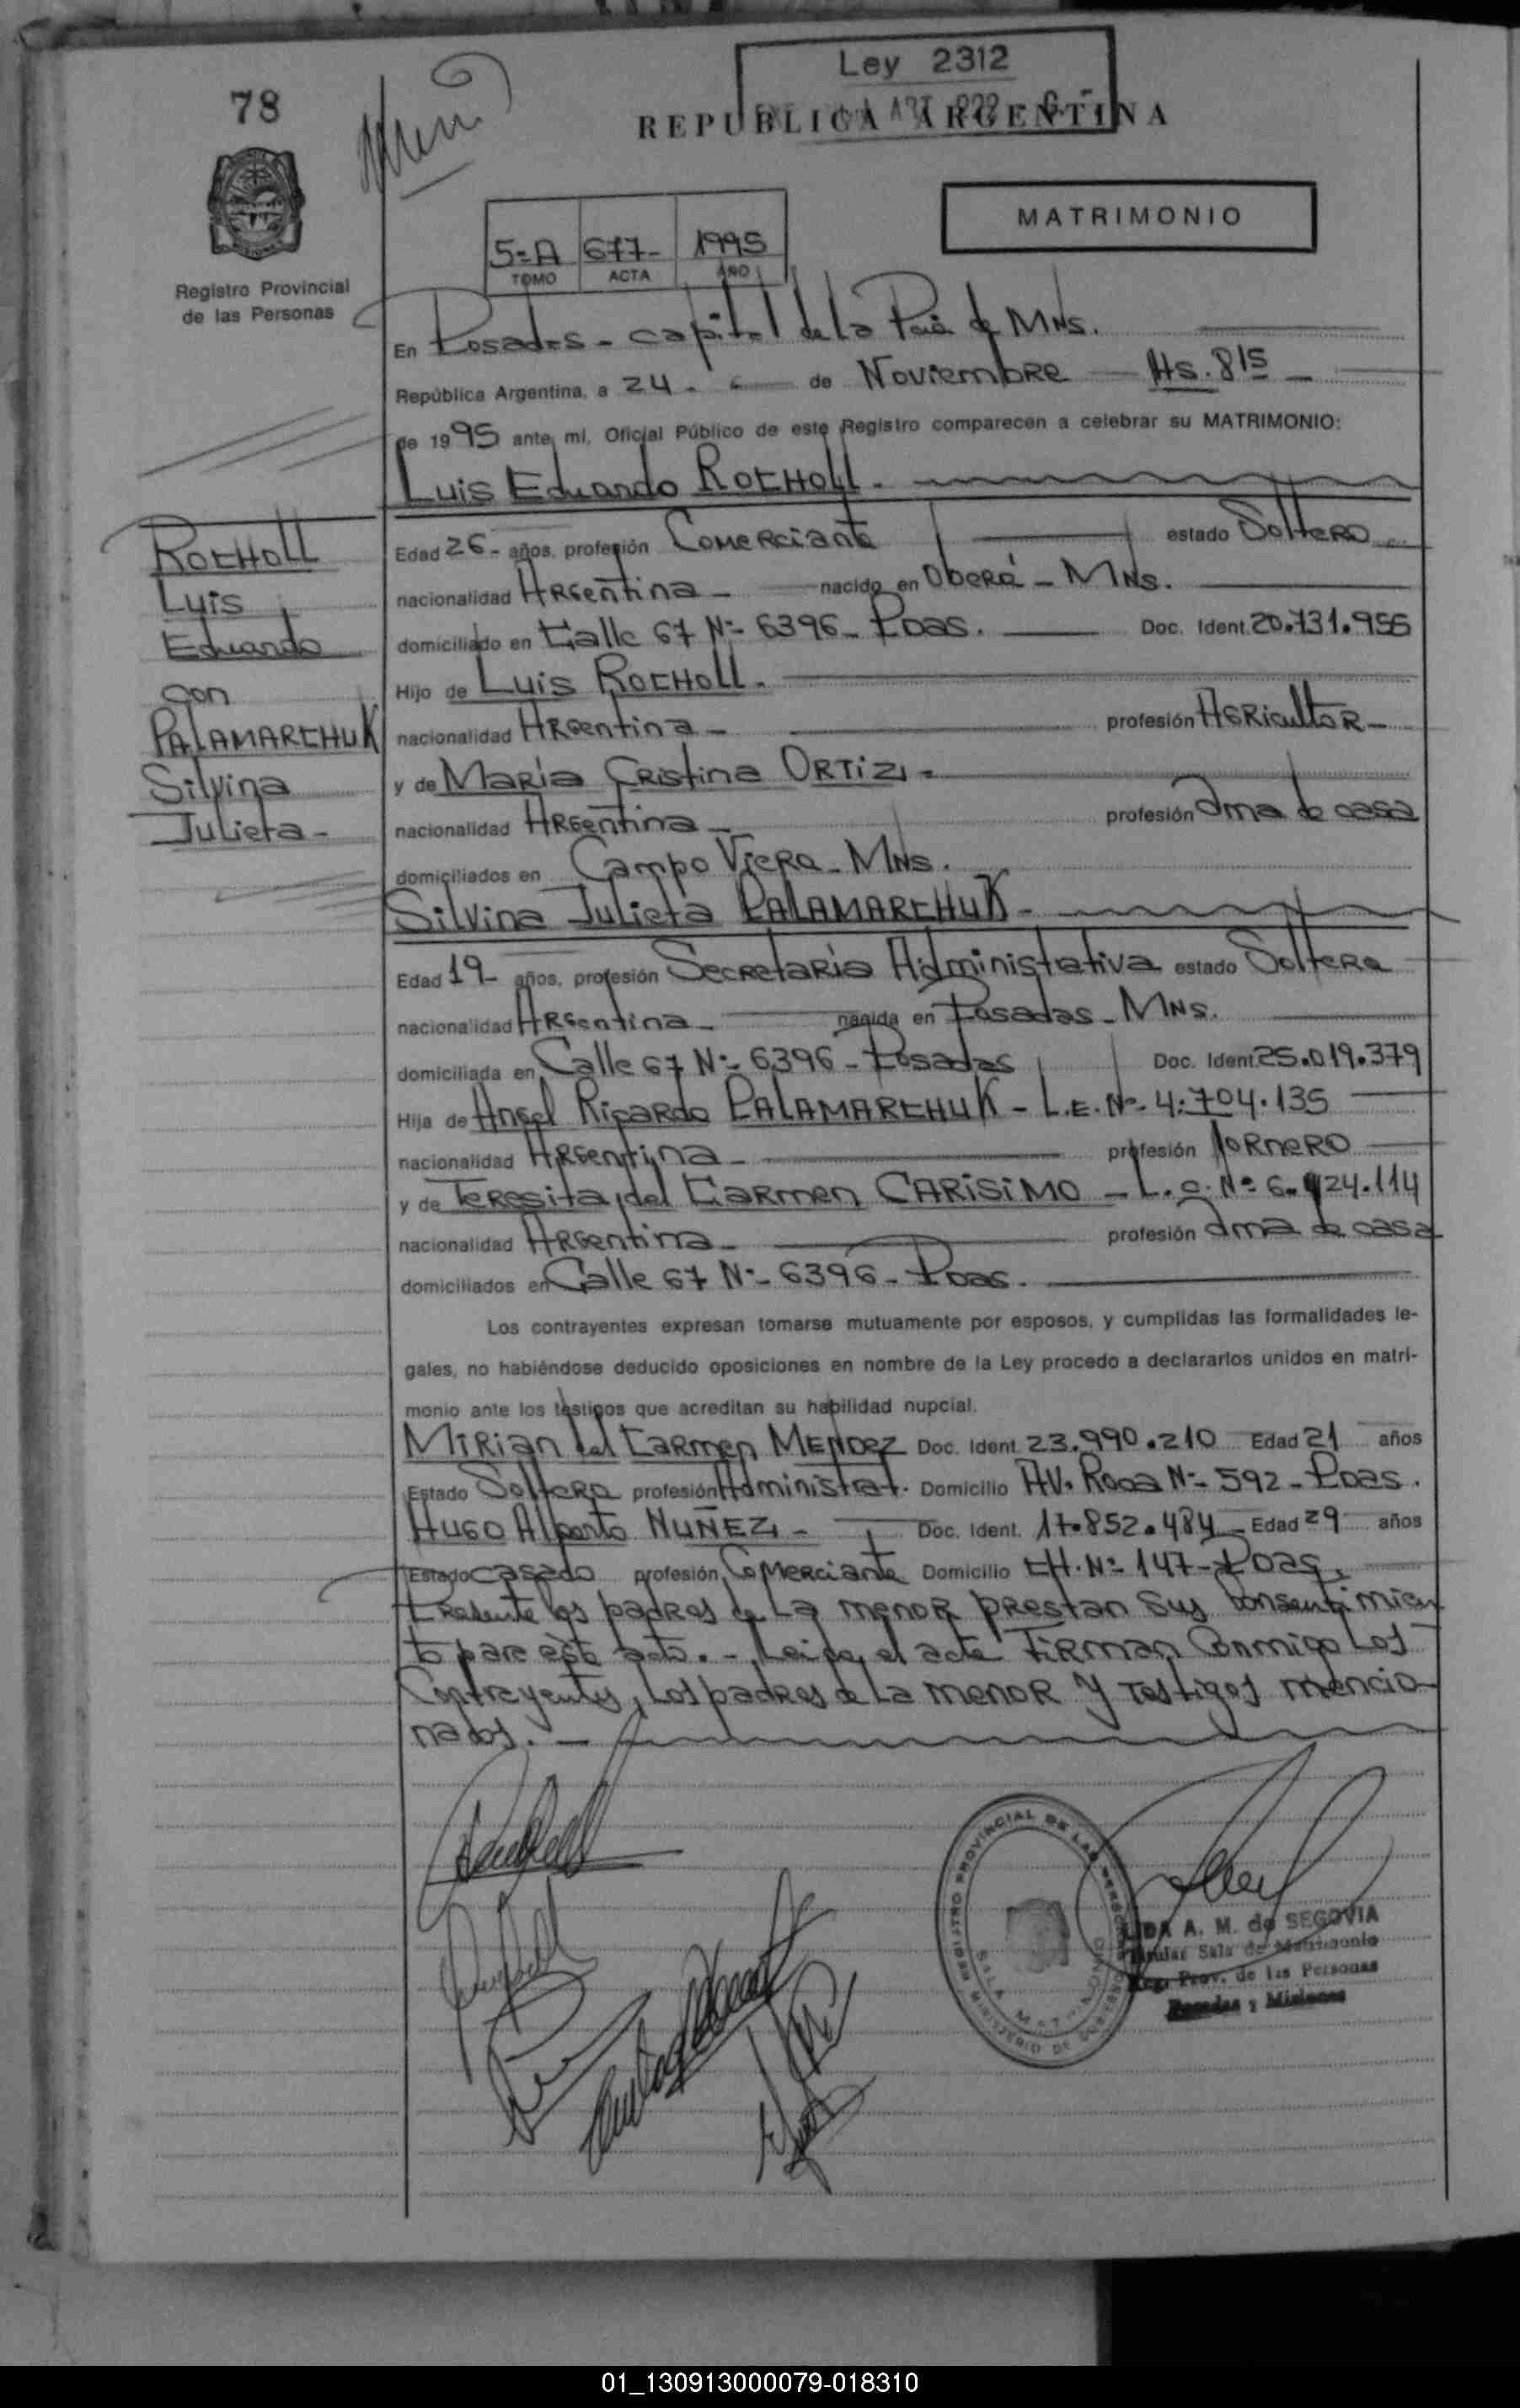 78
Ley 2312
REPUBLICA ARGENTINA
MATRIMONIO
5=A 677- 1995
TOMO ACTA AÑO
Registro Provincial
de las Personas
En Posadas - capital de la Pcia de MNS.
República Argentina, a 24 - de Noviembre Hs. 815
de 1995 ante mi, Oficial Público de este Registro comparecen a celebrar su MATRIMONIO:
Luis Eduardo ROCHOLL -
ROCHOLL
Luis
Eduardo
con
PALAMARCHUK
Silvina
Julieta -
Edad 26 - años, profesión Comerciante estado Soltero
nacionalidad Argentina - nacido en Oberá - MNS.
domiciliado en Calle 67 Nº 6396 - Pdas. Doc. Ident. 20.731.956
Hijo de Luis ROCHOLL -
nacionalidad Argentina - profesión Agricultor -
y de María Cristina ORTIZ -
nacionalidad Argentina - profesión Ama de casa
domiciliados en Campo Viera - MNS.
Silvina Julieta PALAMARCHUK -
Edad 19 - años, profesión Secretaria Administrativa estado Soltera
nacionalidad Argentina - nacida en Posadas - MNS.
domiciliada en Calle 67 Nº 6396 - Posadas Doc. Ident. 25.019.379
Hija de Angel Ricardo PALAMARCHUK - L.E. Nº 4.704.135
nacionalidad Argentina - profesión Tornero
y de Teresita del Carmen CARISIMO - L.C. Nº
nacionalidad Argentina - profesión Ama de casa
domiciliados en Calle 67 Nº 6396 - Pdas.
Los contrayentes expresan tomarse mutuamente por esposos, y cumplidas las formalidades le-
gales, no habiéndose deducido oposiciones en nombre de la Ley procedo a declararlos unidos en matri-
monio ante los testigos que acreditan su habilidad nupcial.
Mirian del Carmen MENDEZ Doc. Ident. 23.990.210 Edad 21 años
Estado Soltera profesión Administrat. Domicilio AV. Roca Nº 592 - Pdas.
Hugo Alberto NUÑEZ - Doc. Ident. 17.852.484 Edad 29 años
Estado casado profesión Comerciante Domicilio CH. Nº 147 - Pdas.
Presente los padres de la menor prestan sus consentimien
to para este acto. - Leida el acta firman conmigo los
Contrayentes, los padres de la menor y testigos mencio-
nados. -
REGISTRO PROVINCIAL DE LAS PERSONAS
SALA MATRIMONIO
MINISTERIO DE GOBIERNO
A. M. de SEGOVIA
Titular Sala de Matrimonio
Reg. Prov. de las Personas
Posadas : Misiones
01_130913000079-018310